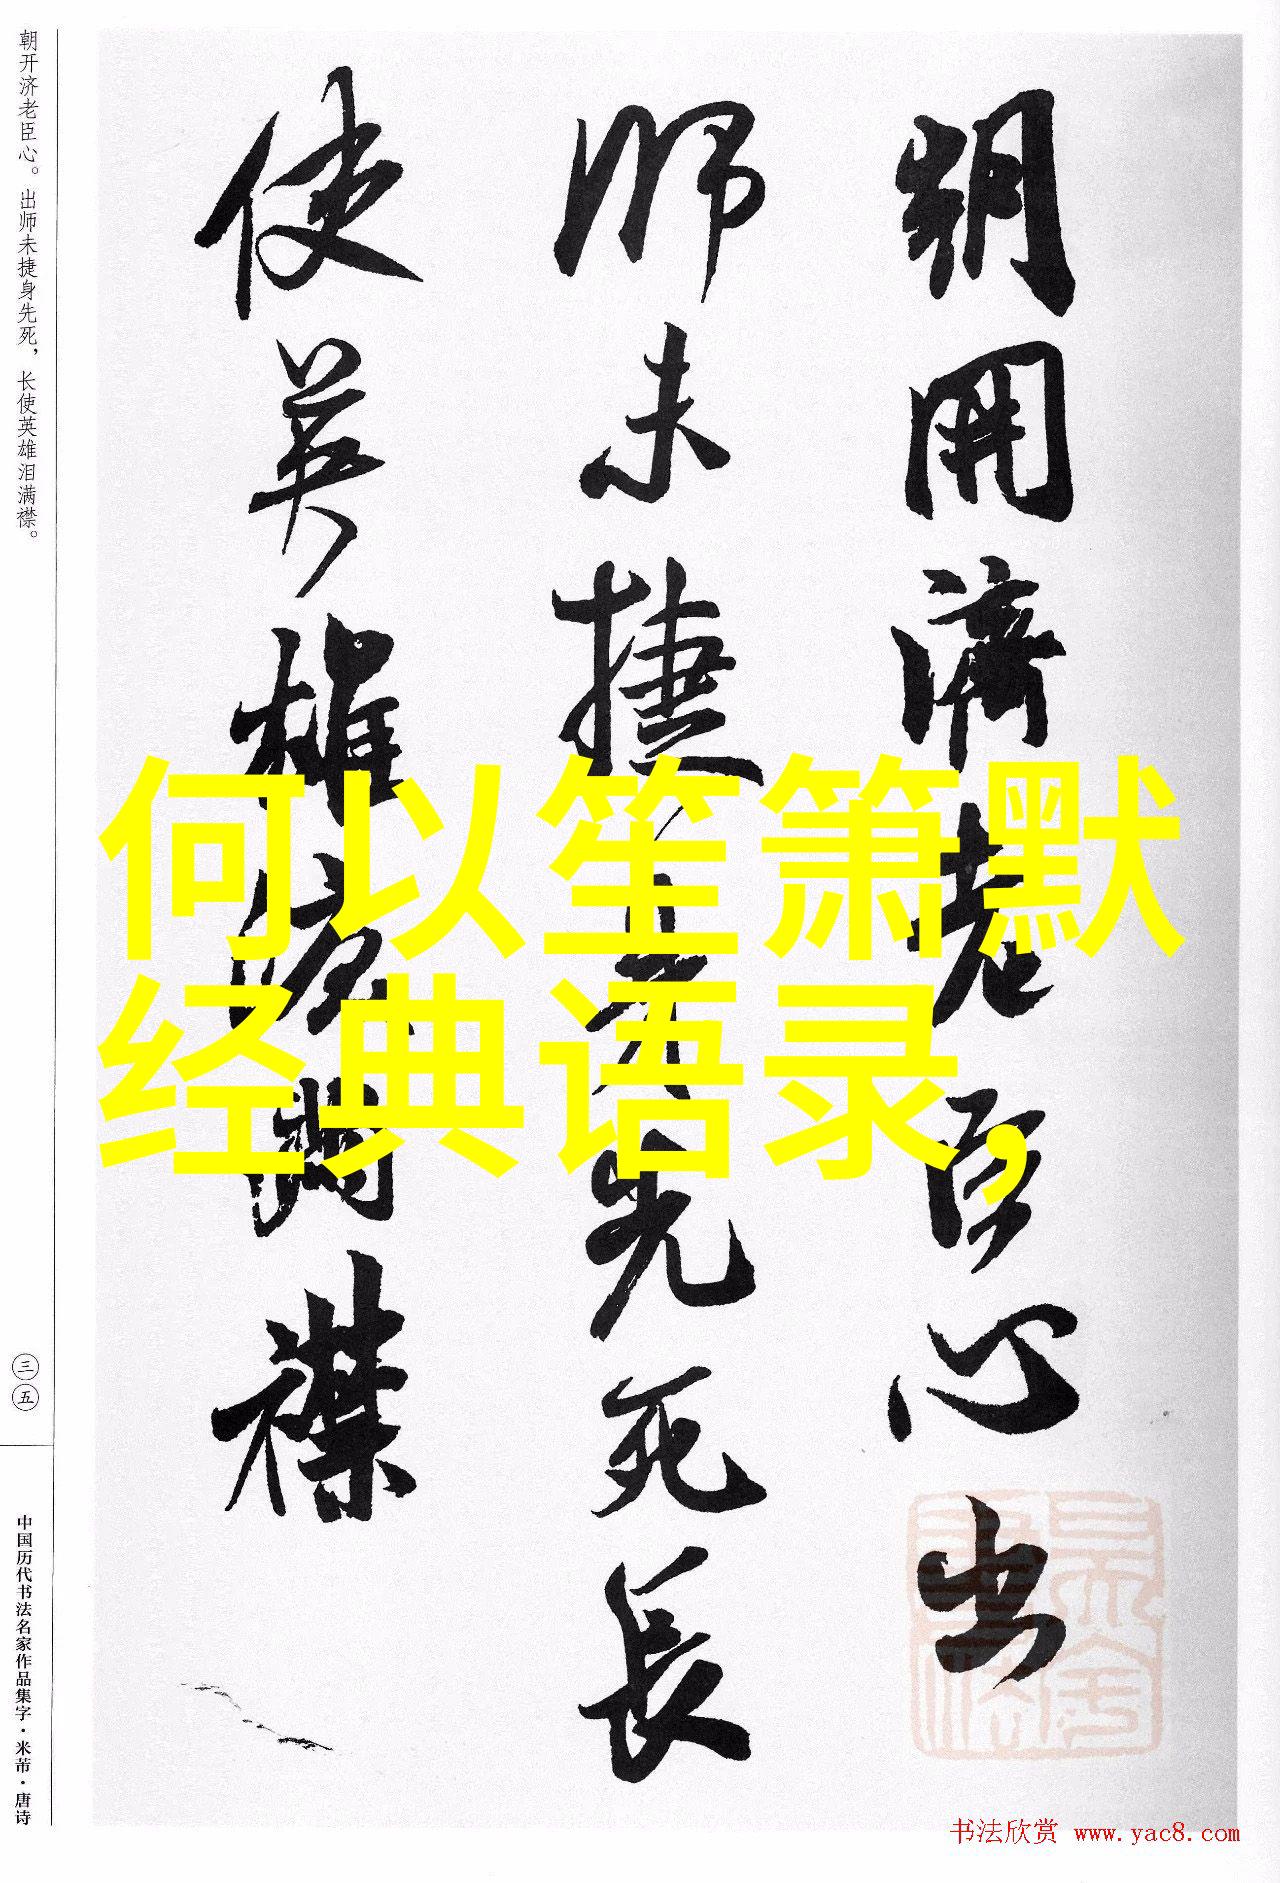 朝开济老臣心。出师未捷身先死，长使英雄泪满襟。
三五
中国历代书法名家作品集字·米芾·唐诗
朝開濟老臣心出
師未捷身先死長
使英雄淚滿襟
何以笙箫默
经典语录，
书法欣赏 www.yac8.com